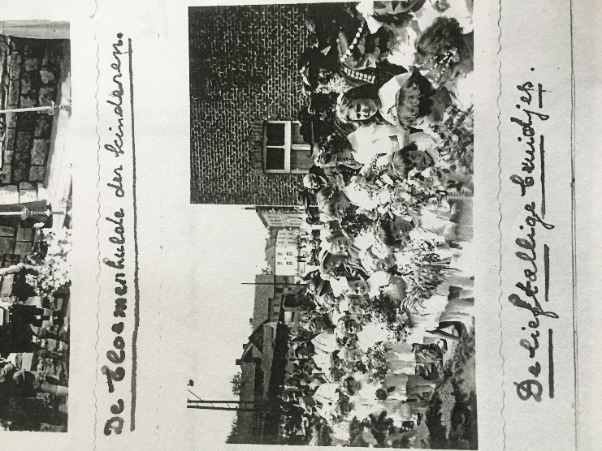 De bloemenhulde der kinderen.
De lieftallige bruidjes.